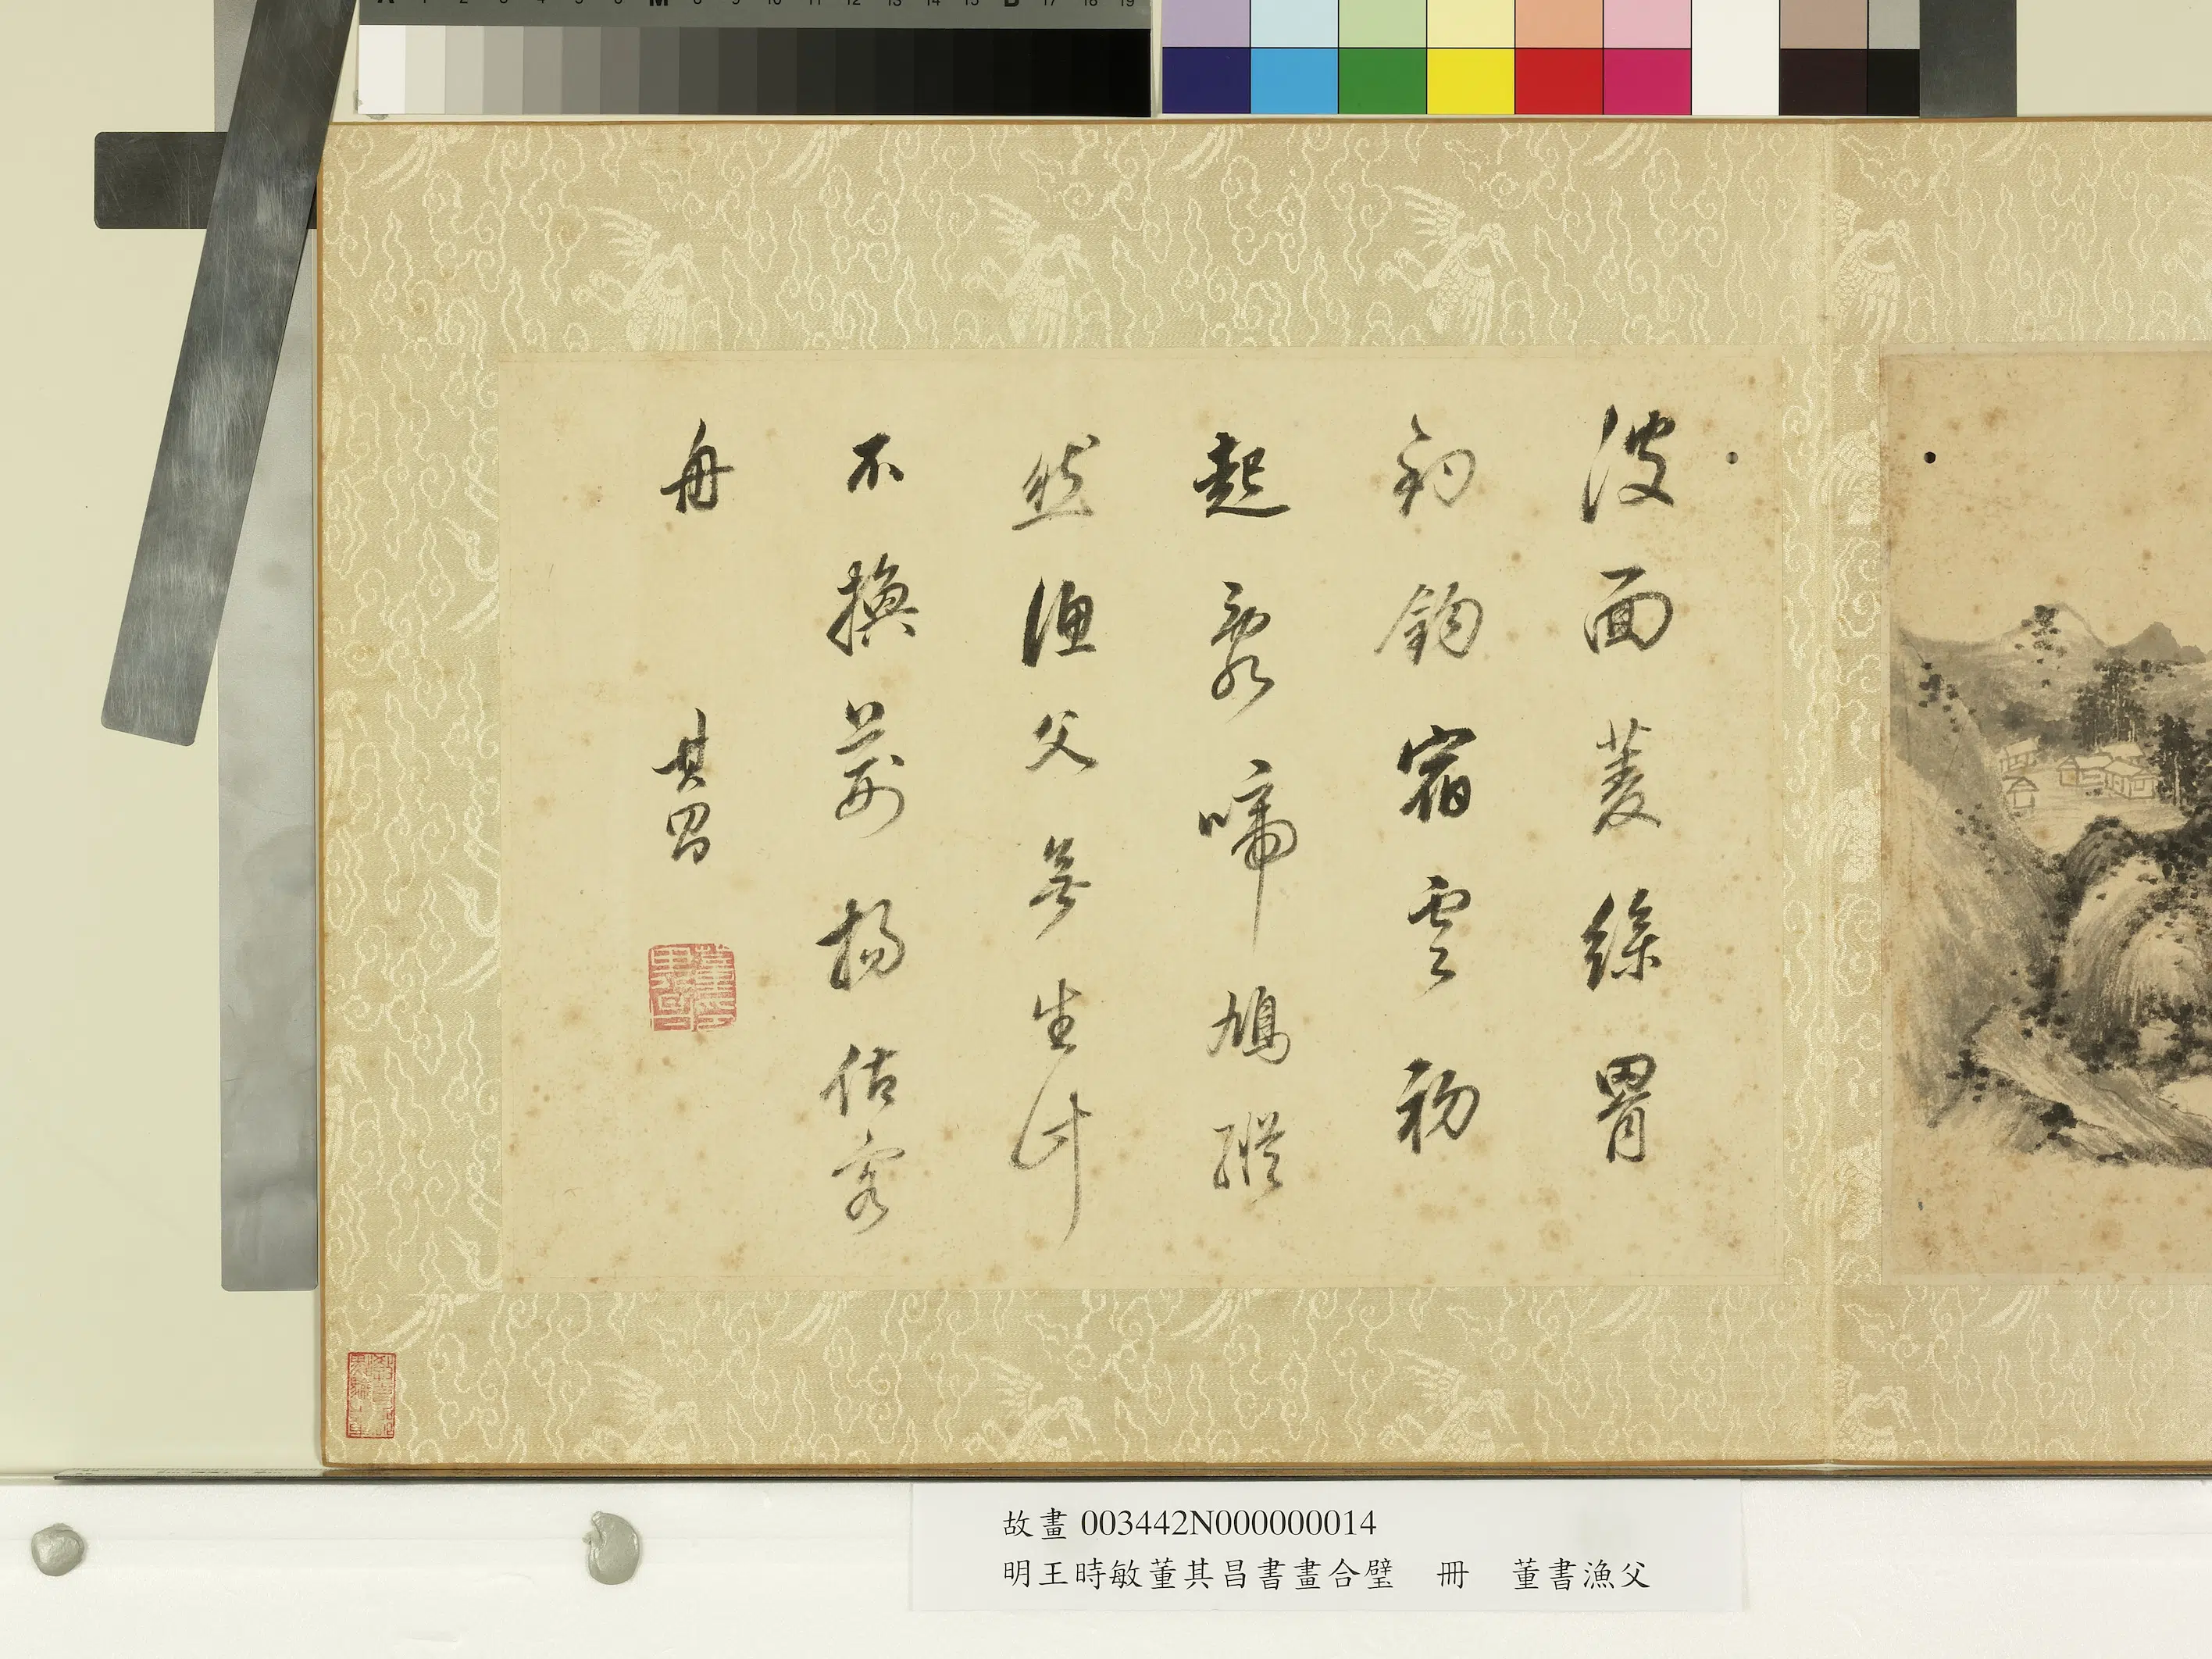 波面菱絲罥
釣鉤宿雲初
起聚啼鳩縱
然漁父無生計
不換荊揚估客
舟 其昌
故畫003442N000000014
明王時敏董其昌書畫合璧 冊 董書漁父